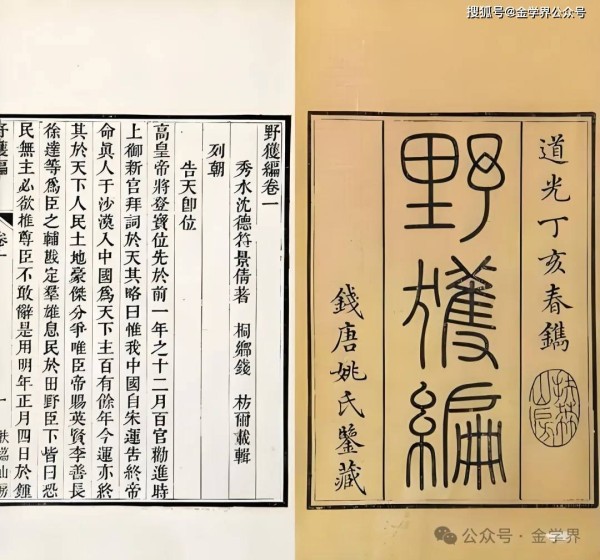 搜狐号@金学界公众号
道光丁亥春鐫
扶荔山房
野獲編
錢唐姚氏鑒藏
野獲編卷一
秀水沈德符景倩著 桐鄉錢 枋爾載輯
列朝
告天卽位
高皇帝將登寶位先於前一年之十二月百官勸進時
上御新宮拜詞於天其略曰惟我中國自宋運告終帝
命眞人于沙漠入中國爲天下主百有餘年今運亦終
其於天下人民土地豪傑分爭唯臣帝賜英賢李善長
徐達等爲臣之輔戡定羣雄息民於田野臣下皆曰恐
民無主必欲推尊臣不敢辭是用明年正月四日於鍾
野獲編 卷一 一 扶荔山房
公众号·金学界